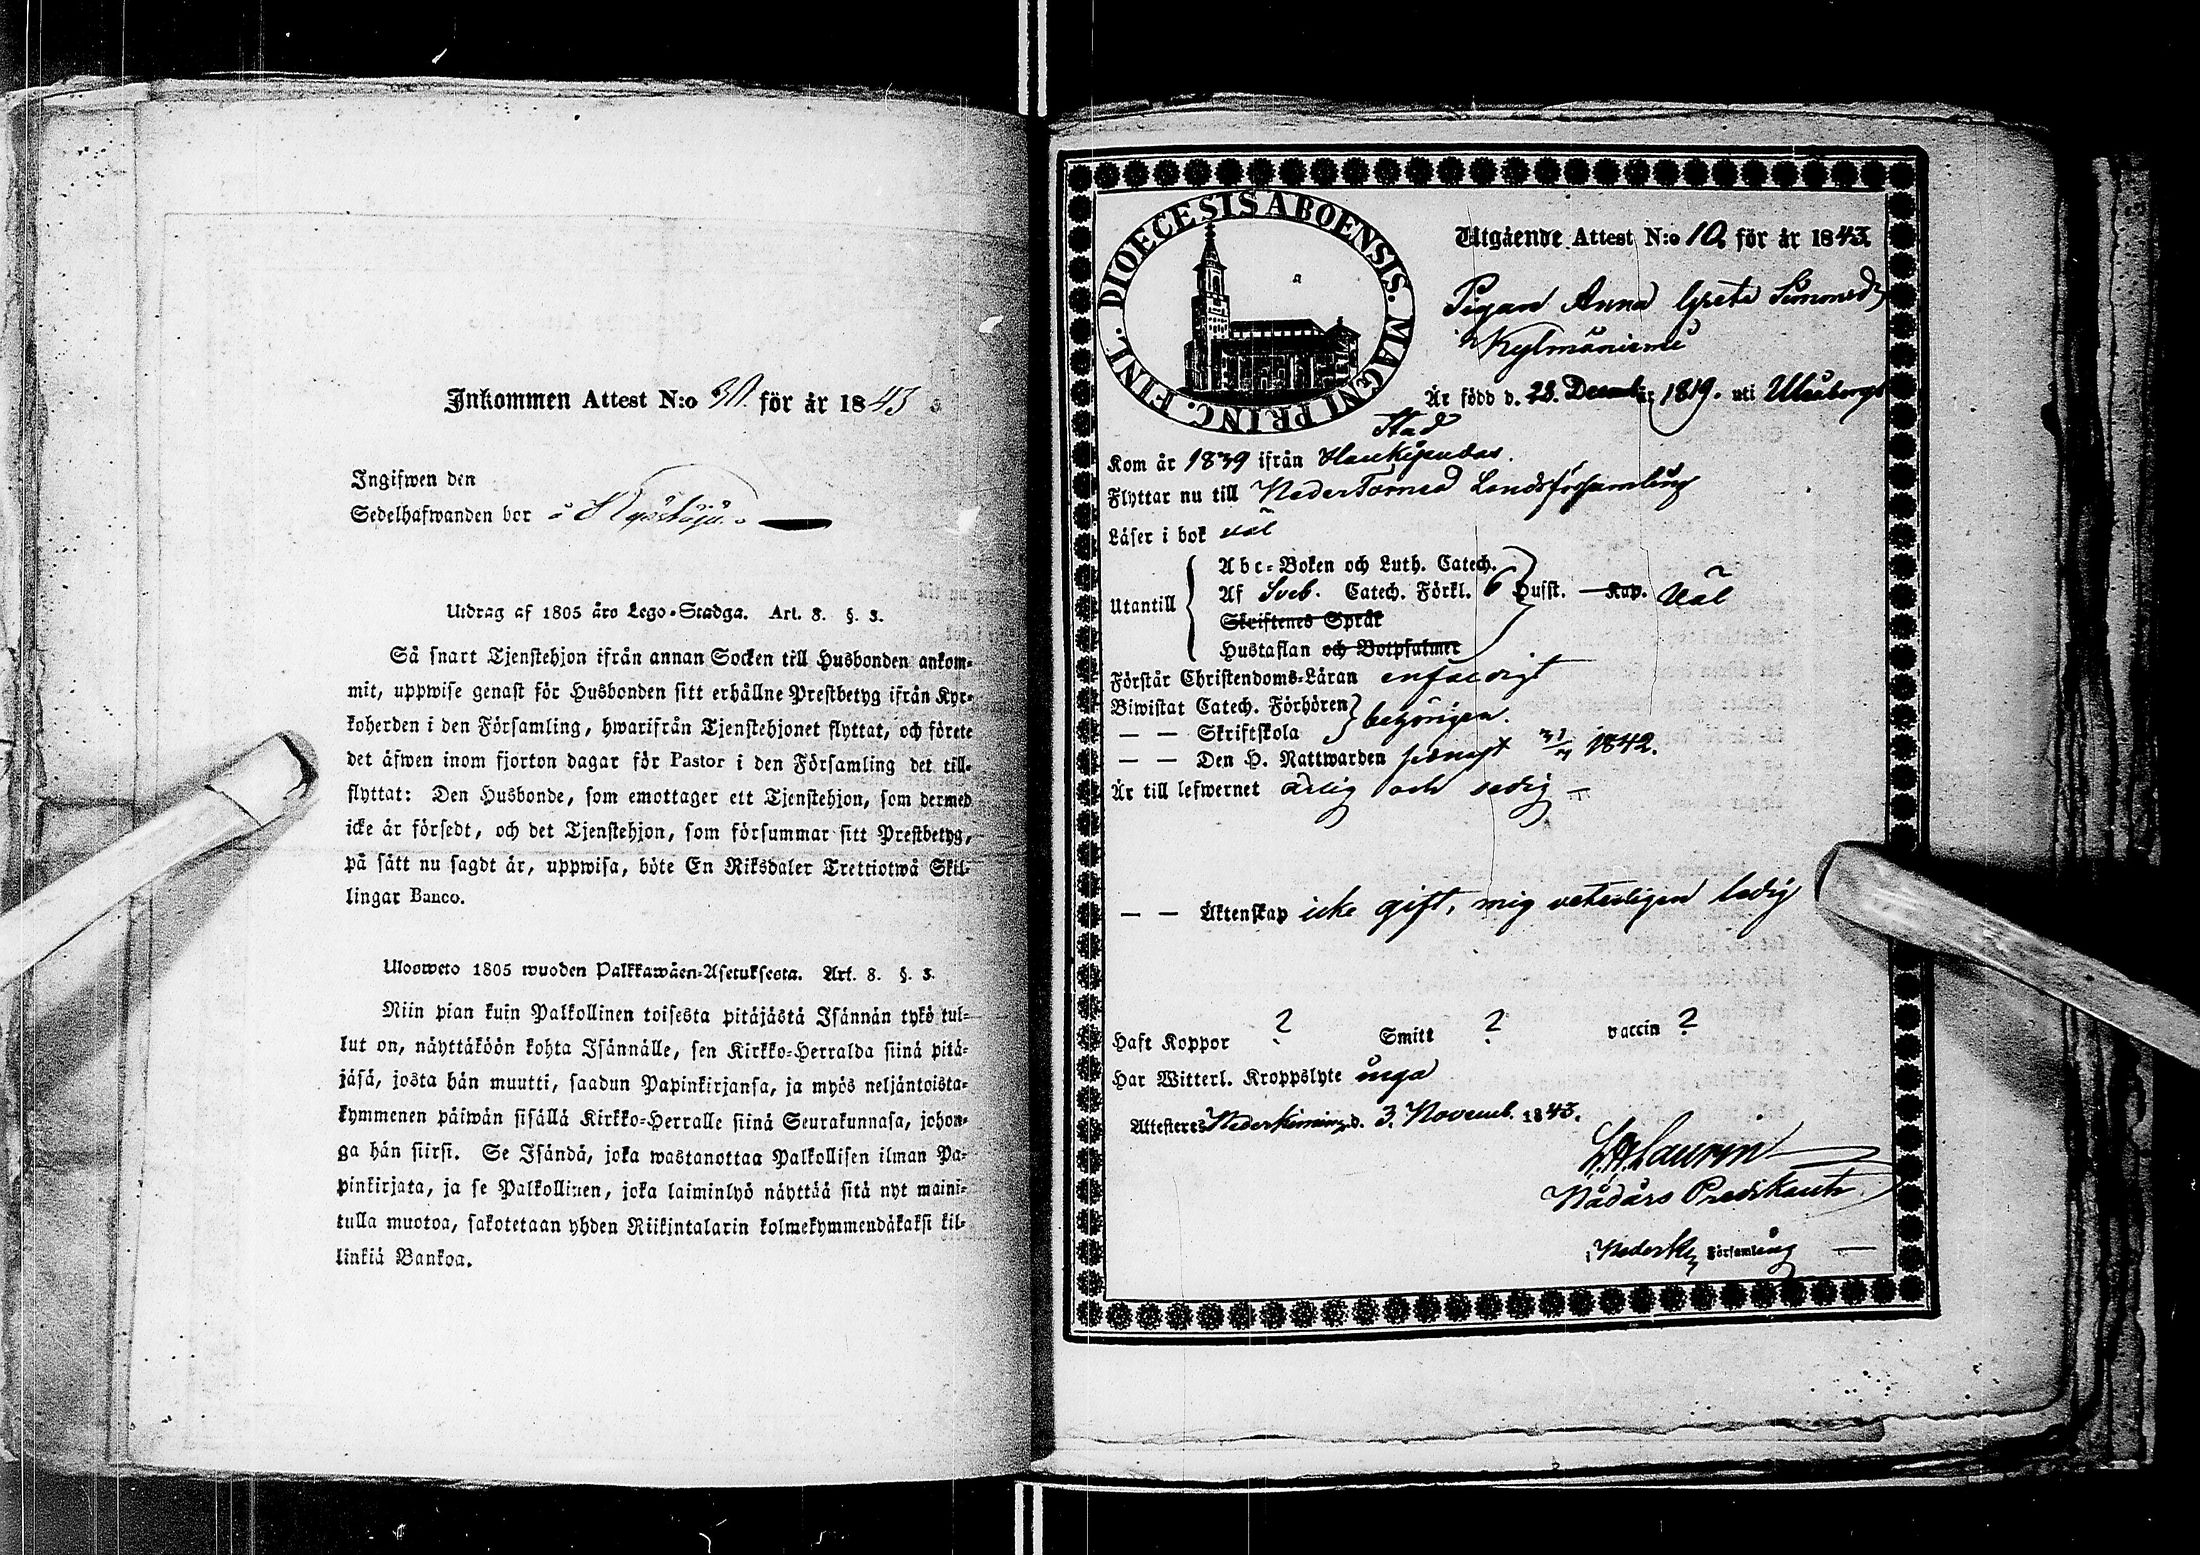 Inkommen Attest N:o 30. för år 1843
Ingifwen den
Sedelhafwanden bor å
Utdrag af 1805 års Lego-Stadga. Art. 8. §. 3.
Så snart Tjenstehjon ifrån annan Socken till Husbonden ankom-
mit, uppwise genast för Husbonden sitt erhållne Prestbetyg ifrån Kyr-
koherden i den Församling, hwarifrån Tjenstehjonet flyttat, och förete
det äfwen inom fjorton dagar för Pastor i den Församling det till-
flyttat: Den Husbonde, som emottager ett Tjenstehjon, som dermed
icke är försedt, och det Tjenstehjon, som försummar sitt Prestbetyg,
på sätt nu sagdt är, uppwisa, böte En Riksdaler Trettiotwå Skil-
lingar Banco.
Ulosweto 1805 wuoden Palkkawäen-Asetuksesta. Art. 8. §. 3.
Niin pian kuin Palkollinen toisesta pitäjästä Isännän tykö tul-
lut on, näyttäköön kohta Isännälle, sen Kirkko-Herralda siinä pitä-
jäsä, josta hän muutti, saadun Papinkirjansa, ja myös neljäntoista-
kymmenen päiwän sisällä Kirkko-Herralle siinä Seurakunnasa, johon-
ga hän siirsi. Se Isändä, joka wastanottaa Palkollisen ilman Pa-
pinkirjata, ja se Palkollinen, joka laiminlyö näyttää sitä nyt maini-
tulla muotoa, sakotetaan yhden Riikintalarin kolmekymmendäkaksi kil-
linkiä Bankoa.
DIOECESIS ABOENSIS. MAGNI PRINC. FINL.
Utgående Attest N:o 10. för år 1843.
Pigan Anna Greta Simonsdr
Kylmäniemi
Är född d. 28. Decemb:r 1819. uti Uleåborgs
Stad
Kom år 1839 ifrån Haukipudas.
Flyttar nu till NederTorneå Landsförsamling
Läser i bok väl
Abc-Boken och Luth. Catech.
Utantill Af Sveb. Catech. Förkl. 6 Hufst. Kap. väl
Skriftenes Språk
Hustaflan och Botpsalmer
Förstår Christendoms-Läran enfaldigt
Biwistat Catech. Förhören behörigen.
— — Skriftskola
— — Den H. Nattwarden senast 31/7 1842.
Är till lefwernet ärlig och sedig —
— — Äktenskap icke gift, mig veterligen ledig
Haft Koppor ? Smitt ? vaccin ?
Har Witterl. Kroppslyte inga
Attesteres Nederkiminge d. 3. Novemb. 1843.
Laurin
Nådårs Predikant
i Nederk. Församling —